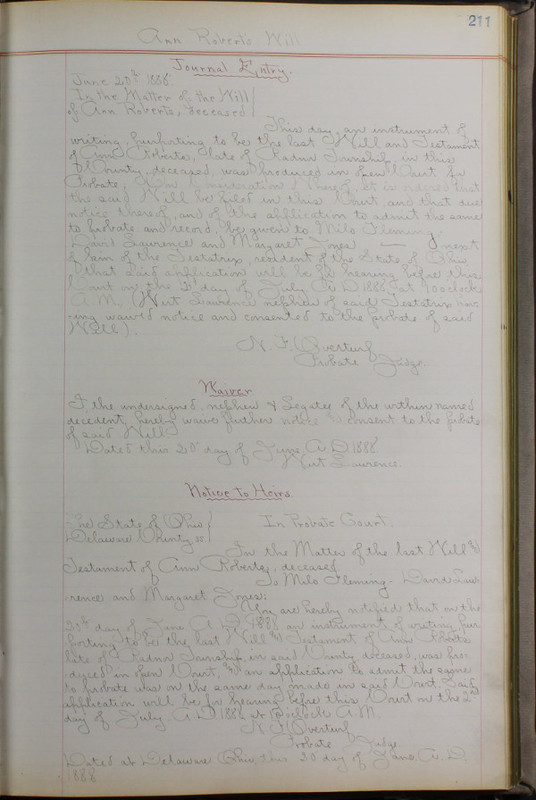 211
Ann Roberts Will
Journal Entry.
June 20th 1888.
In the Matter of the Will
of Ann Roberts, deceased
This day, an instrument of
writing, purporting to be the last Will and Testament
of Ann Roberts, late of Radnor Township, in this
County, deceased, was produced in open Court for
Probate, Upon Consideration thereof, it is ordered that
the said Will be filed in this Court, and that due
notice thereof, and of the application to admit the same
to probate and record, be given to Milo Fleming,
David Lawrence and Margaret Jones next
of kin of the Testatrix, resident of the State of Ohio
that said application will be for hearing before this
Court on the 2d day of July A.D. 1888, at 10 o'clock
A.M. (Wert Lawrence nephew of said Testatrix hav-
ing waived notice and consented to the probate of said
Will).
N. F. Overturf
Probate Judge.
Waiver
I the undersigned, nephew & Legatee of the within named
decedent, hereby waive further notice & consent to the probate
of said Will
Dated this 20" day of June, A.D. 1888
Wert Lawrence.
Notice to Heirs
The State of Ohio
Delaware County ss
In Probate Court.
In the Matter of the last Will &
Testament of Ann Roberts, deceased
To Milo Fleming - David Law-
rence and Margaret Jones:
You are hereby notified that on the
20th day of June A.D. 1888 an instrument of writing, pur
porting to be the last Will & Testament of Ann Roberts
late of Radnor Township, in said County deceased, was pro-
duced in open Court, & an application to admit the same
to probate was on the same day made in said Court. Said
application will be for hearing before this Court on the 2nd
day of July. A.D. 1888 at o'clock A.M.
N. F. Overturf
Probate Judge
Dated at Delaware Ohio, this 20 day of June A.D.
1888